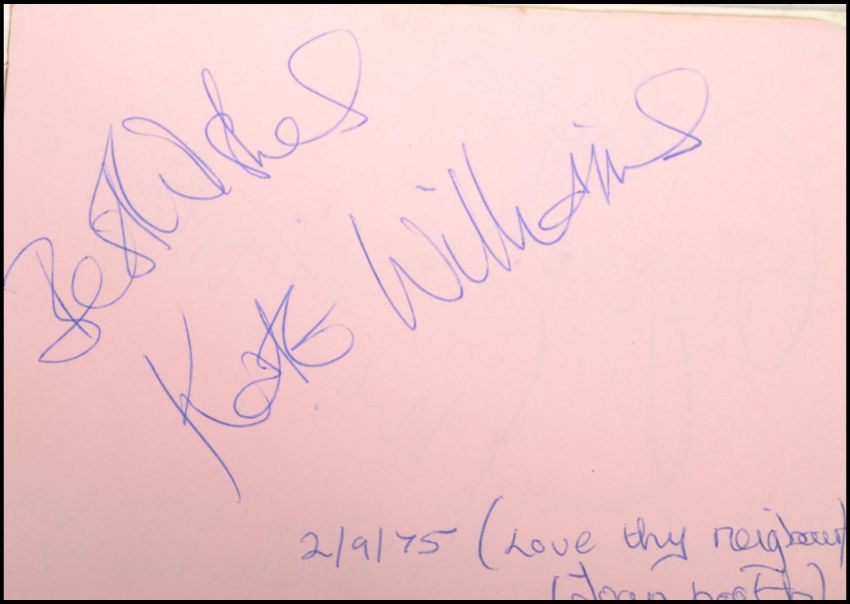 Best Wishes
Kate Williams
2/9/75 (Love thy neigbour)
(Joan booth)